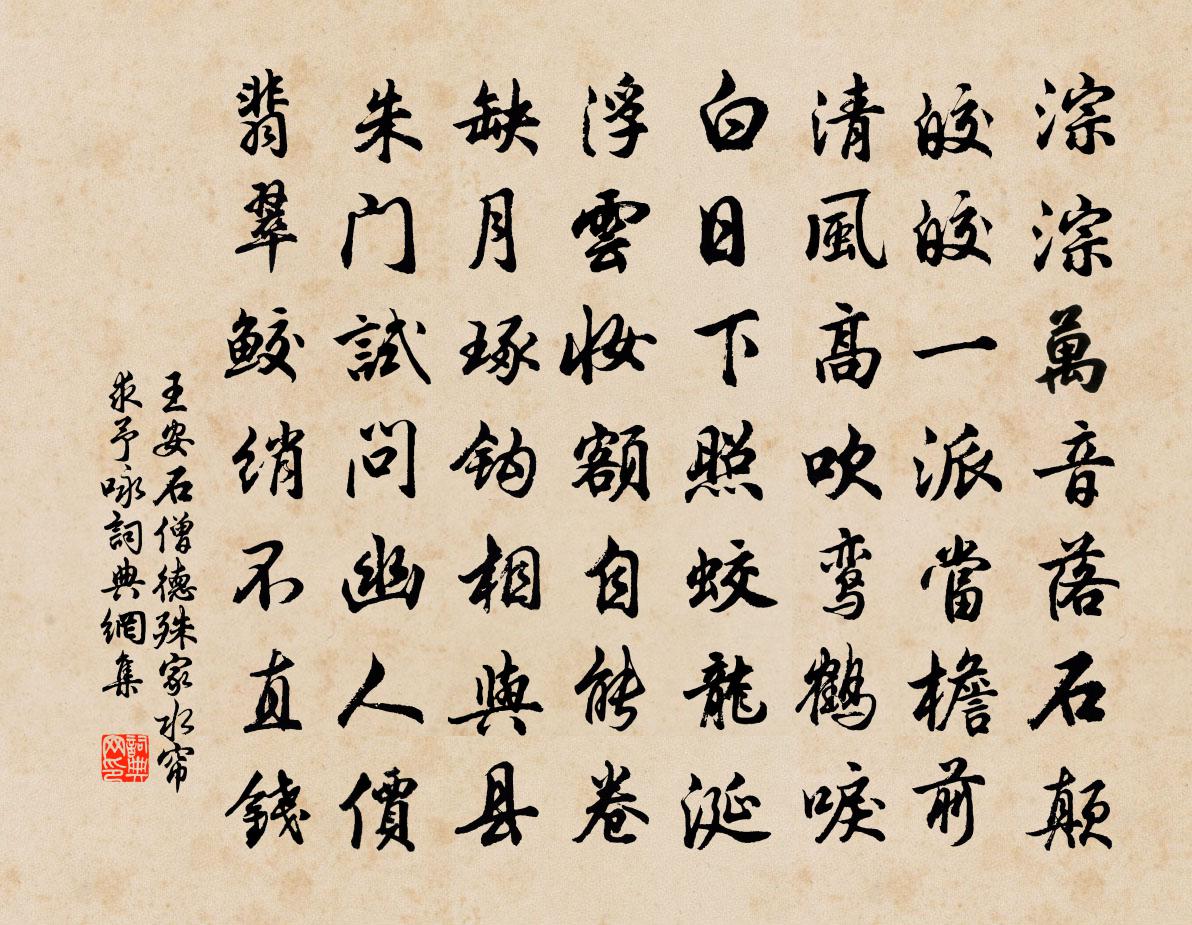 淙淙萬音落石顛
皎皎一派當檐前
清風高吹鸾鶴唳
白日下照蛟龍涎
浮雲妆額自能卷
缺月琢鈎相與县
朱门試问幽人價
翡翠鮫绡不直錢
王安石僧德殊家水帘
求予咏詞典網集
詞典
网印